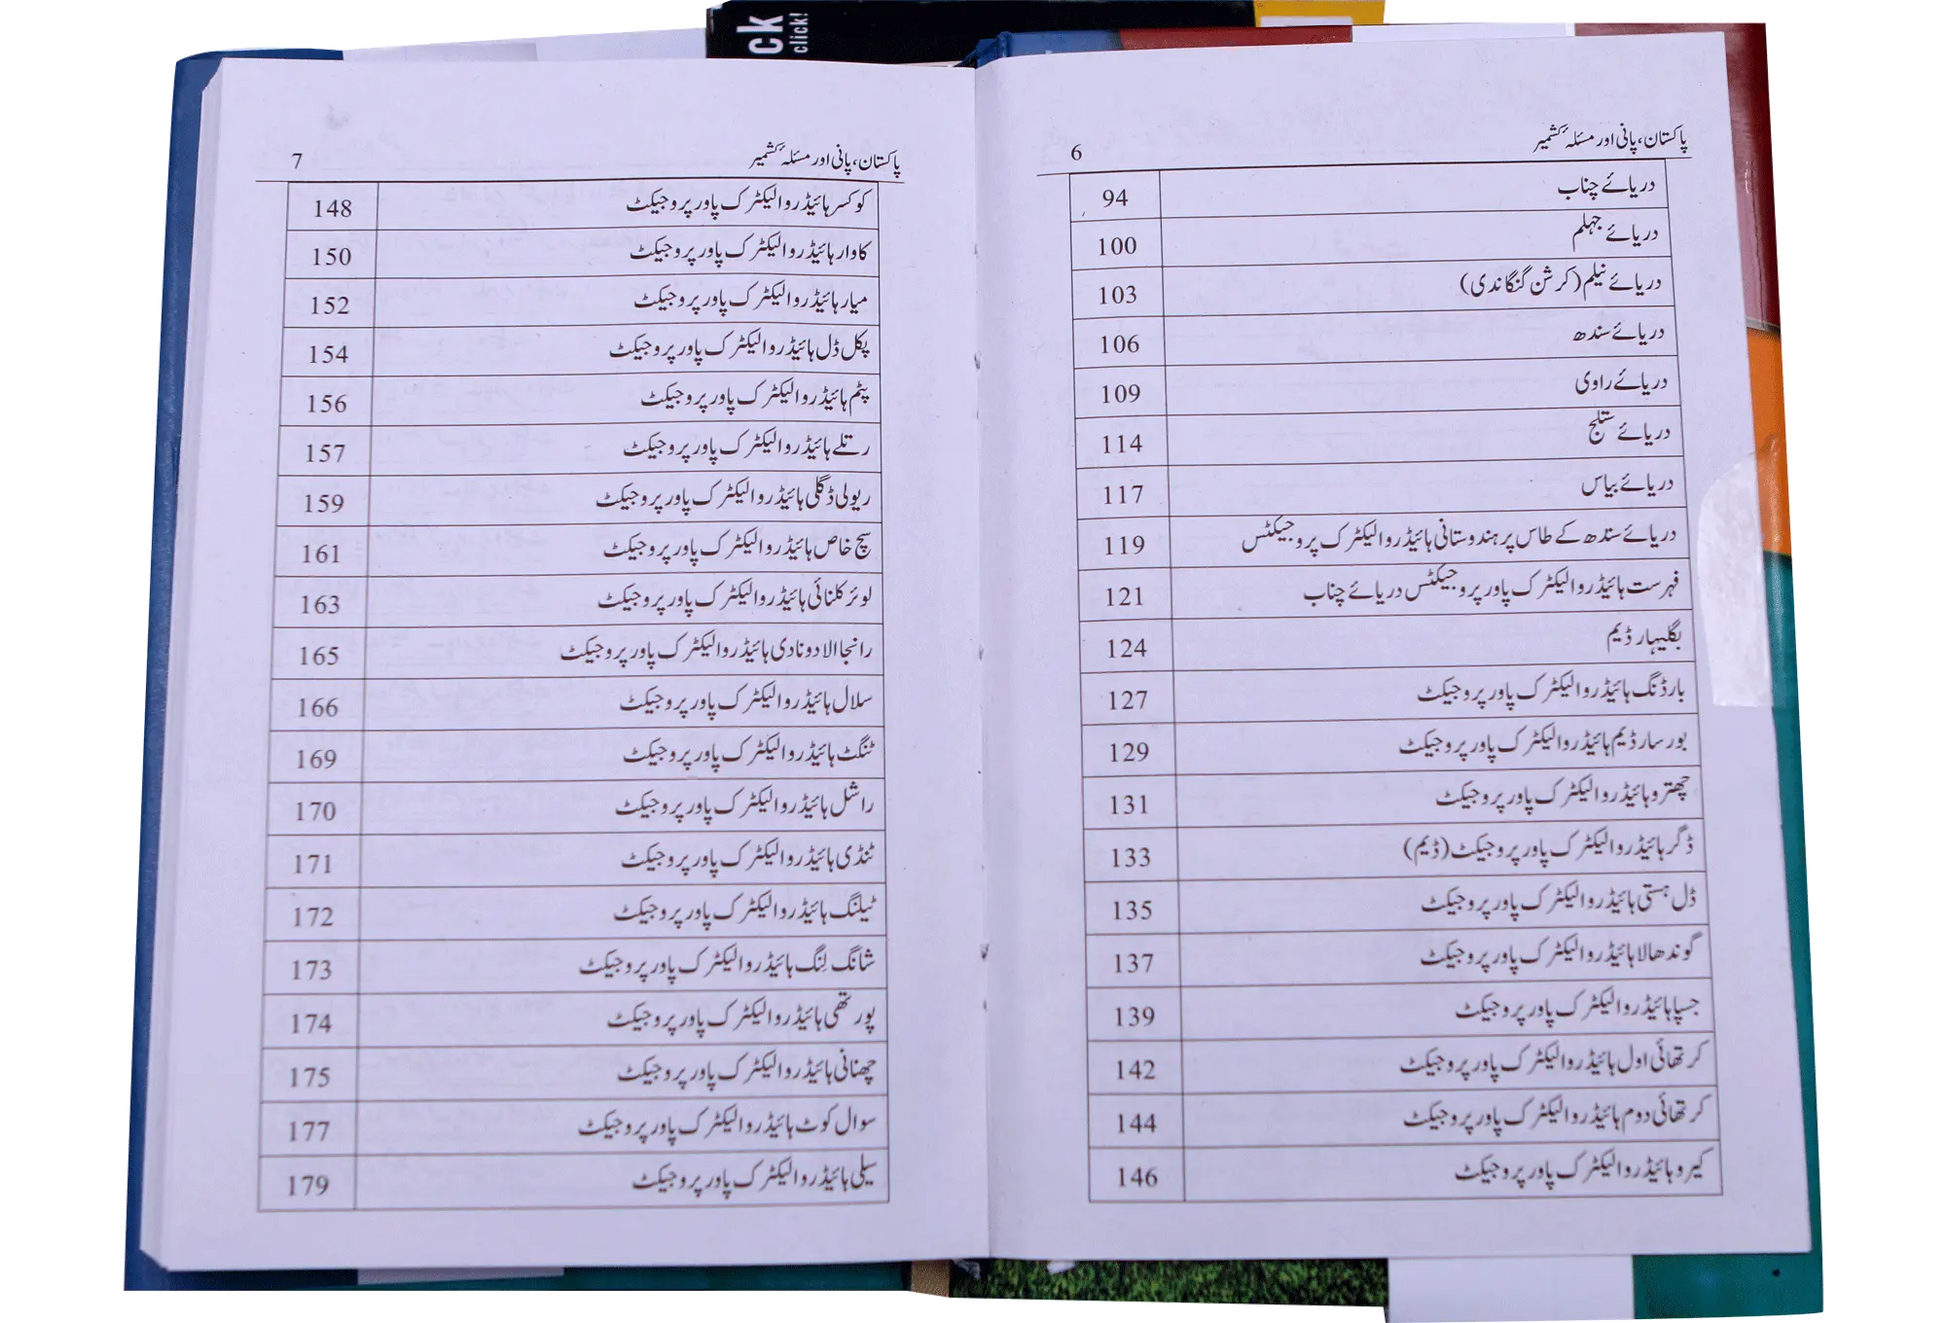 ck
click!
پاکستان، پانی اور مسئلہ کشمیر 6
دریائے چناب 94
دریائے جہلم 100
دریائے نیلم (کرشن گنگا ندی) 103
دریائے سندھ 106
دریائے راوی 109
دریائے ستلج 114
دریائے بیاس 117
دریائے سندھ کے طاس پر ہندوستانی ہائیڈرو الیکٹرک پروجیکٹس 119
فہرست ہائیڈرو الیکٹرک پاور پروجیکٹس دریائے چناب 121
بگلیہار ڈیم 124
بارڈنگ ہائیڈرو الیکٹرک پاور پروجیکٹ 127
بورسار ڈیم ہائیڈرو الیکٹرک پاور پروجیکٹ 129
چھترو ہائیڈرو الیکٹرک پاور پروجیکٹ 131
ڈگر ہائیڈرو الیکٹرک پاور پروجیکٹ (ڈیم) 133
ڈل ہستی ہائیڈرو الیکٹرک پاور پروجیکٹ 135
گوندھالا ہائیڈرو الیکٹرک پاور پروجیکٹ 137
جسپا ہائیڈرو الیکٹرک پاور پروجیکٹ 139
کرتھائی اول ہائیڈرو الیکٹرک پاور پروجیکٹ 142
کرتھائی دوم ہائیڈرو الیکٹرک پاور پروجیکٹ 144
کیرو ہائیڈرو الیکٹرک پاور پروجیکٹ 146
پاکستان، پانی اور مسئلہ کشمیر 7
کوکسر ہائیڈرو الیکٹرک پاور پروجیکٹ 148
کاوار ہائیڈرو الیکٹرک پاور پروجیکٹ 150
میار ہائیڈرو الیکٹرک پاور پروجیکٹ 152
پکل ڈل ہائیڈرو الیکٹرک پاور پروجیکٹ 154
پٹم ہائیڈرو الیکٹرک پاور پروجیکٹ 156
رتلے ہائیڈرو الیکٹرک پاور پروجیکٹ 157
ریولی ڈگلی ہائیڈرو الیکٹرک پاور پروجیکٹ 159
سچ خاص ہائیڈرو الیکٹرک پاور پروجیکٹ 161
لوئر کلنائی ہائیڈرو الیکٹرک پاور پروجیکٹ 163
رانجا الا دونادی ہائیڈرو الیکٹرک پاور پروجیکٹ 165
سلال ہائیڈرو الیکٹرک پاور پروجیکٹ 166
ٹنگٹ ہائیڈرو الیکٹرک پاور پروجیکٹ 169
راشل ہائیڈرو الیکٹرک پاور پروجیکٹ 170
ٹنڈی ہائیڈرو الیکٹرک پاور پروجیکٹ 171
ٹیلنگ ہائیڈرو الیکٹرک پاور پروجیکٹ 172
شانگ لِنگ ہائیڈرو الیکٹرک پاور پروجیکٹ 173
پورتھی ہائیڈرو الیکٹرک پاور پروجیکٹ 174
چھنانی ہائیڈرو الیکٹرک پاور پروجیکٹ 175
سوال کوٹ ہائیڈرو الیکٹرک پاور پروجیکٹ 177
سیلی ہائیڈرو الیکٹرک پاور پروجیکٹ 179